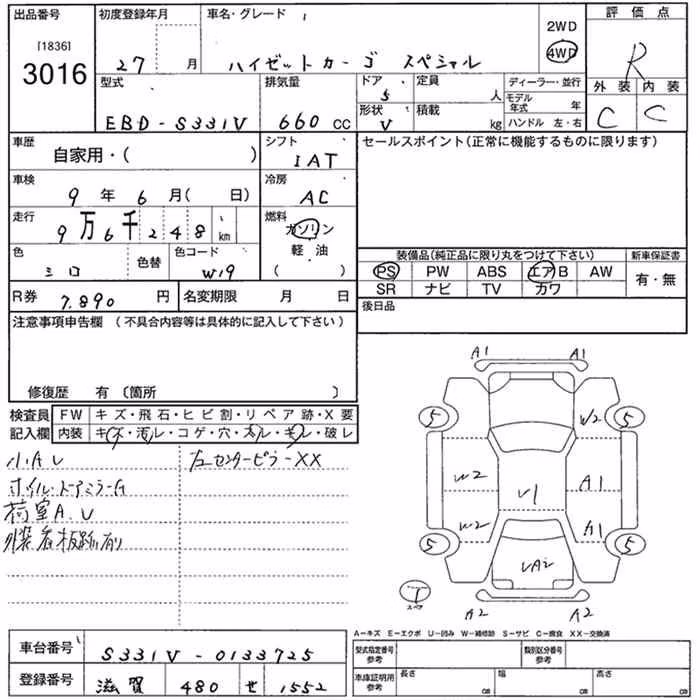 出品番号 初度登録年月 車名・グレード 評価点
[1836] 2WD
3016 27 月 ハイゼットカーゴ スペシャル 4WD R
型式 排気量 ドア 5 定員 人 ディーラー・並行 外装 内装
EBD-S331V 660 CC 形状 V 積載 kg モデル年式 年 C C
ハンドル 左・右
車歴 自家用・( ) シフト IAT セールスポイント(正常に機能するものに限ります)
車検 9年 6月( 日) 冷房 AC
走行 9万6千248 km 燃料 ガソリン
軽油
( )
色 シロ 色替 色コード W19 装備品(純正品に限り丸をつけて下さい) 新車保証書
PS PW ABS エアB AW 有・無
SR ナビ TV カワ
R券 7,890 円 名変期限 月 日 後日品
注意事項申告欄 (不具合内容等は具体的に記入して下さい)
修復歴 有 〔箇所 〕
検査員 FW キズ・飛石・ヒビ割・リペア跡・X要
記入欄 内装 キズ・汚レ・コゲ・穴・太ル・キレ・破レ
小AU 左センターピラーXX
ホイル・ドアミラーA
荷室A.U
外装看板跡有
A1 A1
5 W2 5
W2 V1 A1
W2 A1
5 5
UA2
T
スペア
A2 A2
A-キズ E-エクボ U-凹み W-補修跡 S-サビ C-腐食 XX-交換済
車台番号 S331V-0133725 型式指定番号 参考 類別区分番号 参考
登録番号 滋賀 480 せ 1552 車庫証明用 参考 長さ cm 幅 cm 高さ cm